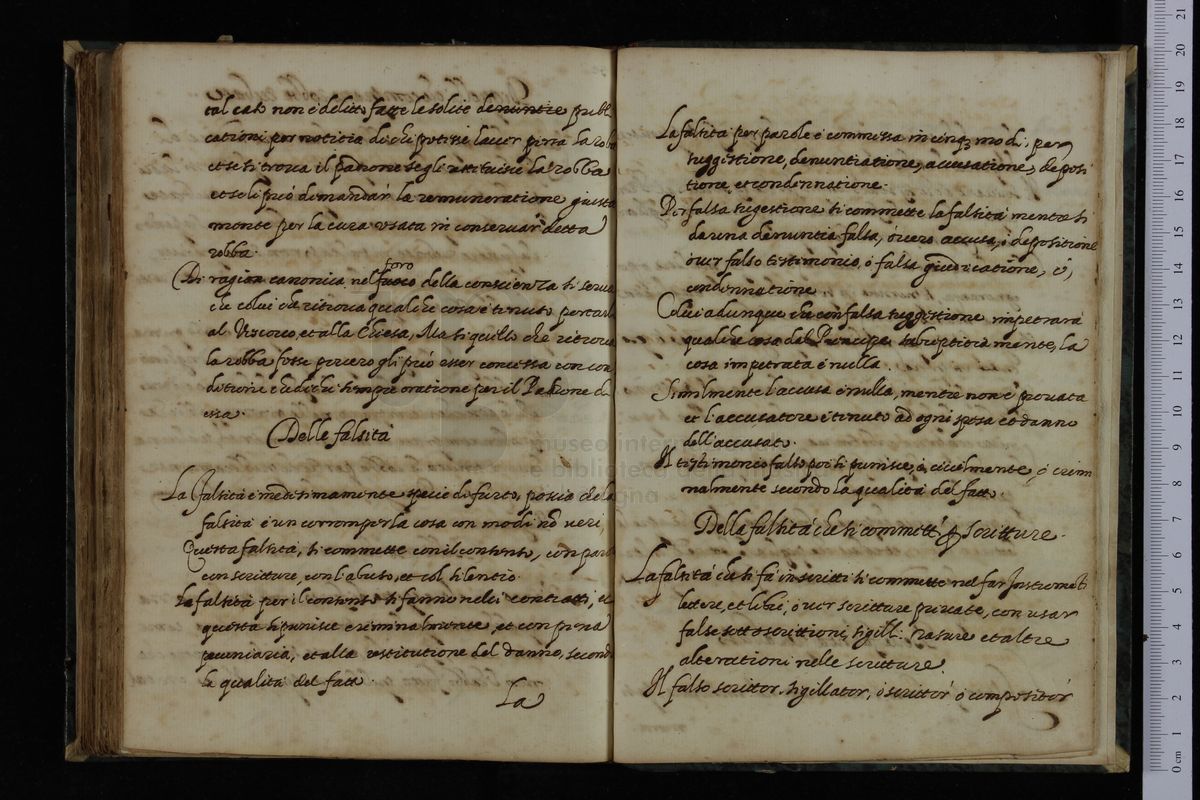 tal caso non è delitto fatte le solite denuntie publi
cationi per notitia di chi potessi haver persa la rob
et se si trova il padrone se gli restituisce la robba
et se li può demandar la remuneratione giusta
mente per la cura usata in conservar detta
robba.
Di ragion canonica, nel foro della conscienza si serva
che colui ch ritrova qualche cosa è tenuto portarl
al Vescovo, et alla Chiesa, Ma si quello che ritrova
la robba fosse povero gli può esser concessa con con
ditione che dichi sempre oratione per il Padrone di
essa.
Delle falsità
La falsità è medesimamente specie di furto, poscia che la
falsità è un corromper la cosa con modi nō veri,
Questa falsità, si commette con il contento, con par
con scritture, con l'abuso, et col silentio.
La falsità per il contento si fanno nelli contratti, et
questa si punisce criminalmente, et con pena
pecuniaria, et alla restitutione del danno, second
la qualità del fatto.
La
La falsità per parole è commessa in cinq modi, per
suggestione, denuntiatione, accusatione, deposi
tione, et condennatione.
Per falsa sugestione si commette la falsità mentre si
da una denuntia falsa, ò vero accusa, ò depositione
over falso testimonio, ò falsa giudicatione, ò,
condennatione
Colui adunque che con falsa suggestione impetrara
qualche cosa dal Principe subreptitiamente, la
cosa impetrata è nulla.
Similmente l'accusa è nulla, mentre non è provata
et l'accusatore è tenuto ad ogni spesa et danno
dell'accusato.
Il testimonio falso poi si punisce, ò, civilmente, ò crimi
nalmente secondo la qualità del fatto.
Della falsità che si commett' p Scritture.
La falsità che si fà in scritti si commette nel far Instromēti
lettere, et libri, ò ver scritture private, con usar
false sottoscrittioni, sigill: rasure et altre
alterationi nelle scritture
Il falso scrittor, sigillator, ò scrittor ò compositor